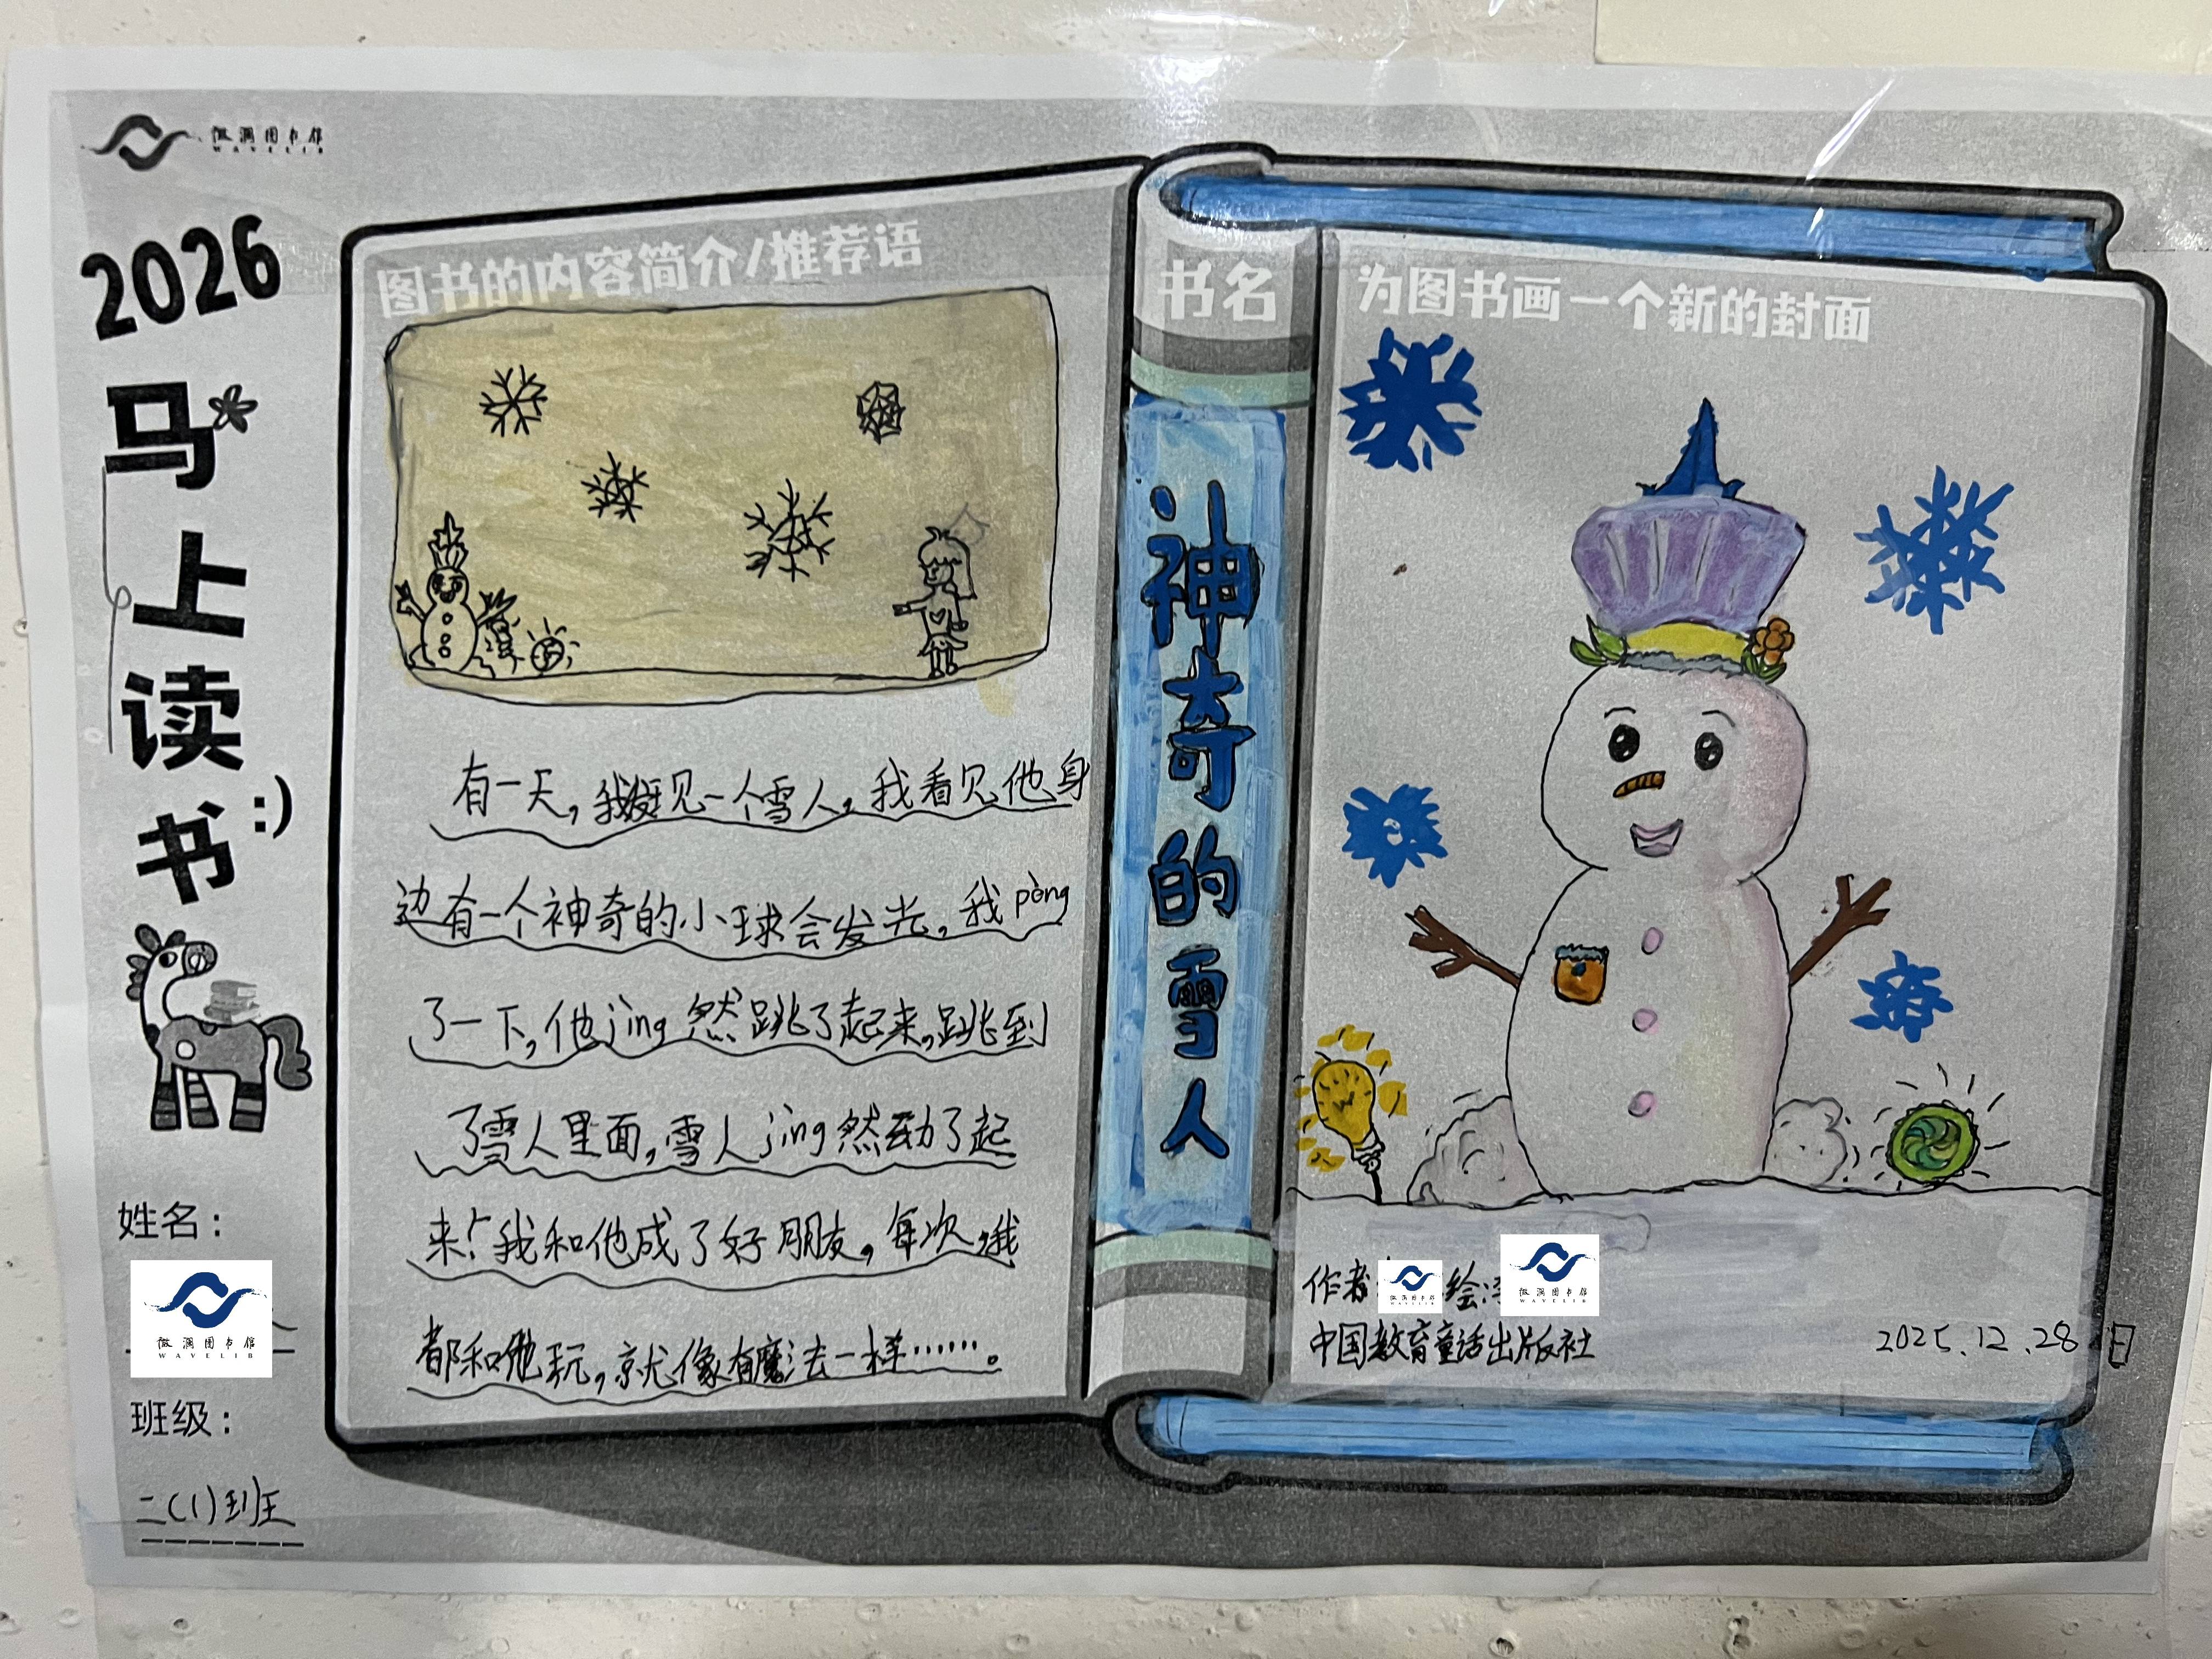 微澜图书馆
WAVELIB
2026
马上读书:)
姓名：
微澜图书馆
WAVELIB
班级：
二(1)班
图书的内容简介/推荐语
有一天，我发现一个雪人，我看见他身
边有一个神奇的小球会发光，我pèng
了一下，他jìng然跳了起来，跳到
了雪人里面，雪人jìng然动了起
来！我和他成了好朋友，每次，我
都和他玩，就像有魔法一样……。
书名
神奇的雪人
为图书画一个新的封面
作者 微澜图书馆 WAVELIB 绘： 微澜图书馆 WAVELIB
中国教育童话出版社
2025.12.28日